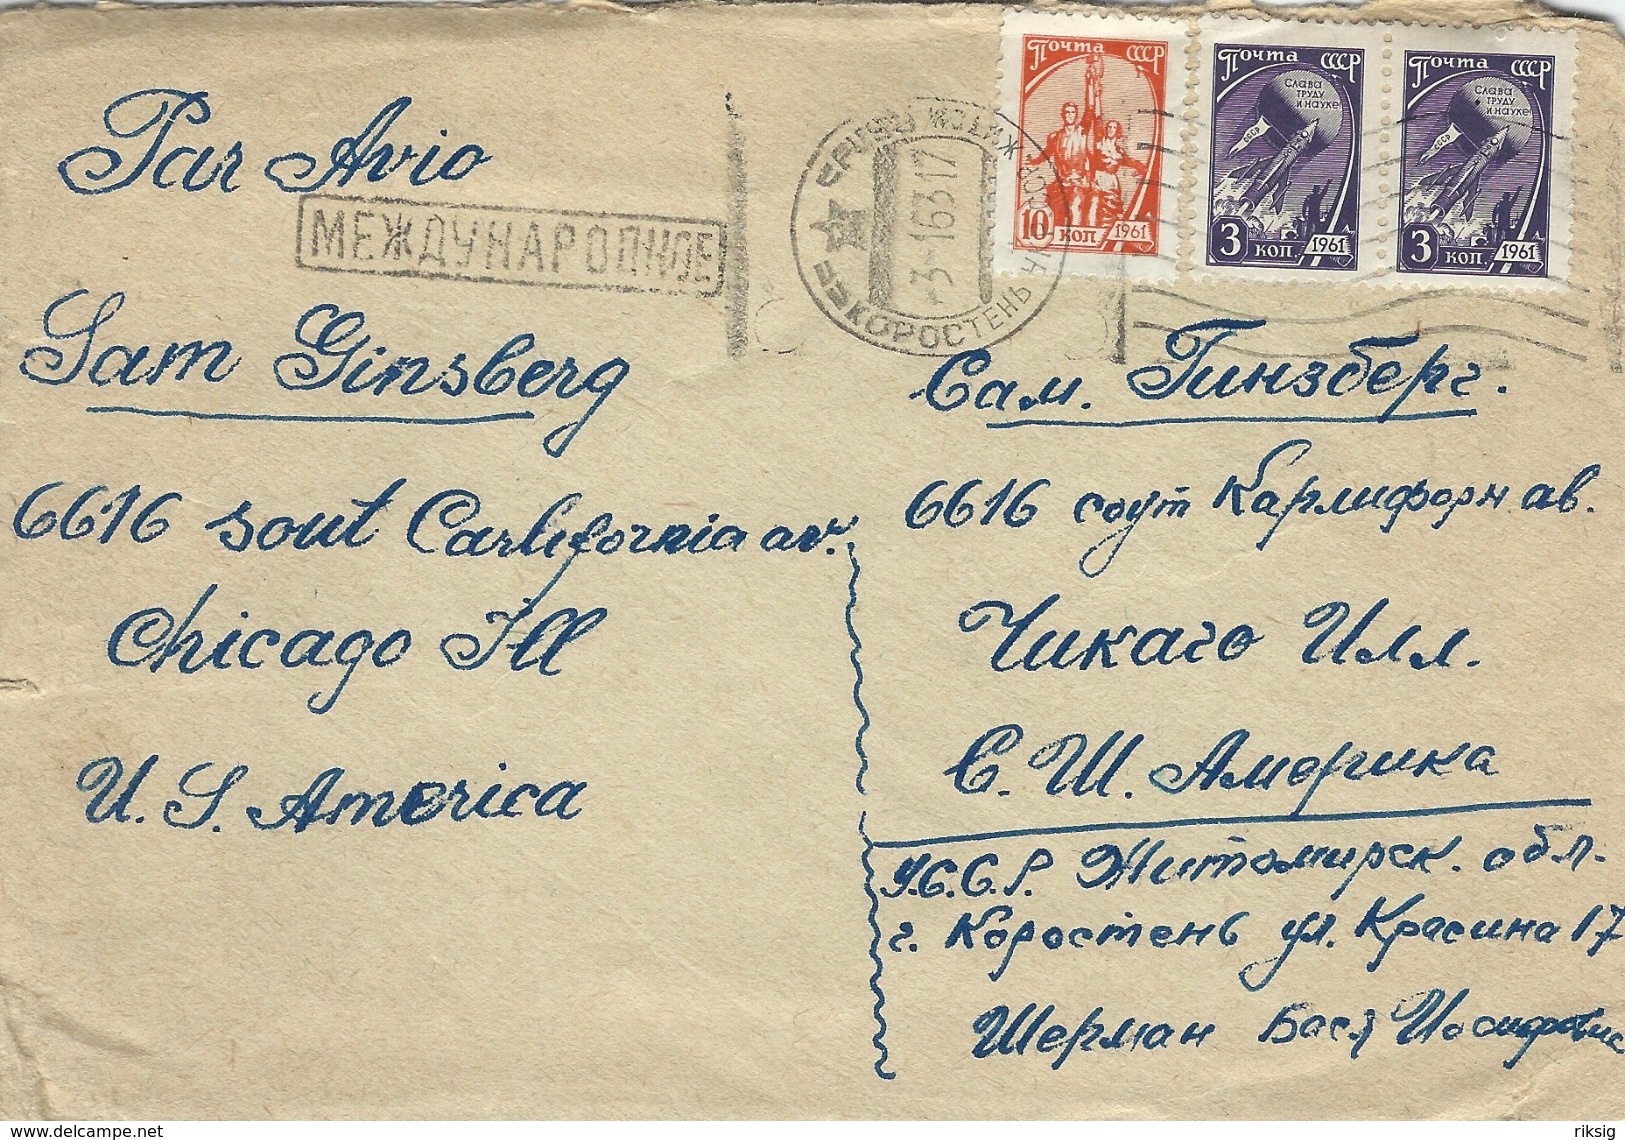 Почта СССР
10 коп 1961
Почта СССР
Слава
труду
и науке!
СССР
3 коп. 1961
Почта СССР
Слава
труду
и науке!
СССР
3 коп. 1961
КОРОСТЕНЬ
-3-1 63 17
Par Avio
МЕЖДУНАРОДНОЕ
Sam Ginsberg
6616 sout Carlifornia av.
Chicago Ill
U. S. America
Сам. Гинзберг.
6616 соут Карлифорн ав.
Чикаго Илл.
С. Ш. Америка
У.С.С.Р. Житомирск. обл.
г. Коростень ул. Красина 17
Шерман Бася Иосифовн
riksig